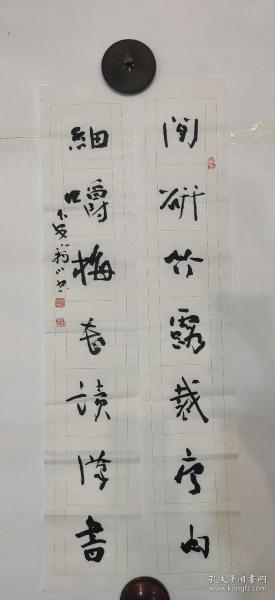 閒研竹露裁唐句
細嚼梅花讀漢書
孔夫子旧书网